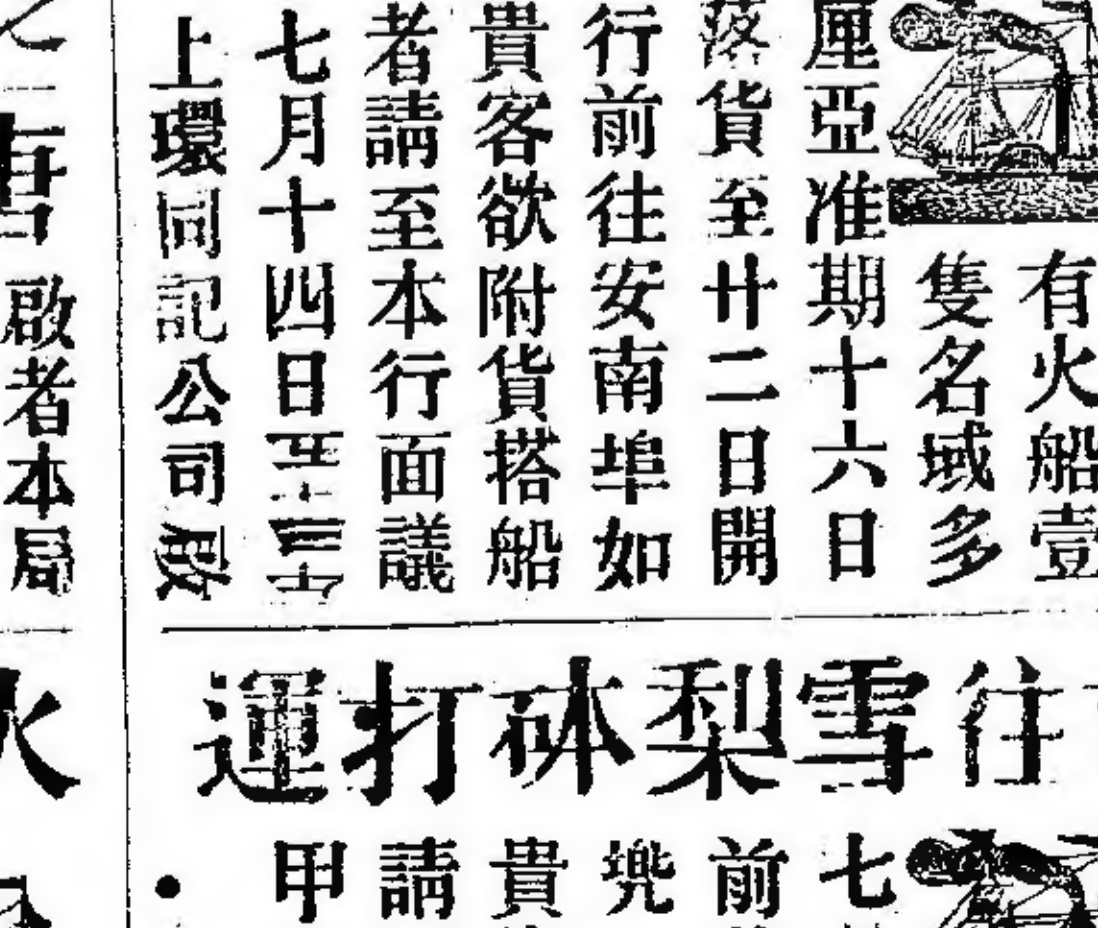 有火船壹
隻名域多
厘亞准期十六日
落貨至廿二日開
行前往安南埠如
貴客欲附貨搭船
者請至本行面議
七月十四日
上環同記公司啟
往雪梨砵打運
七
前
兠
貴
請
甲
啟者本局
火